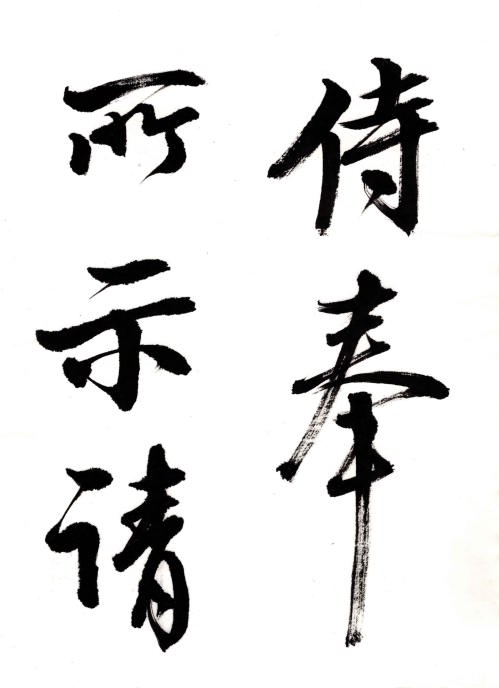 侍奉
所示请